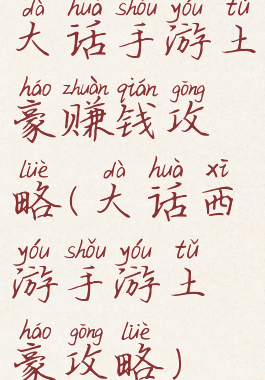 dà huà shǒu yóu tǔ
大话手游土
háo zhuàn qián gōng
豪赚钱攻
lüè dà huà xī
略(大话西
yóu shǒu yóu tǔ
游手游土
háo gōng lüè
豪攻略)